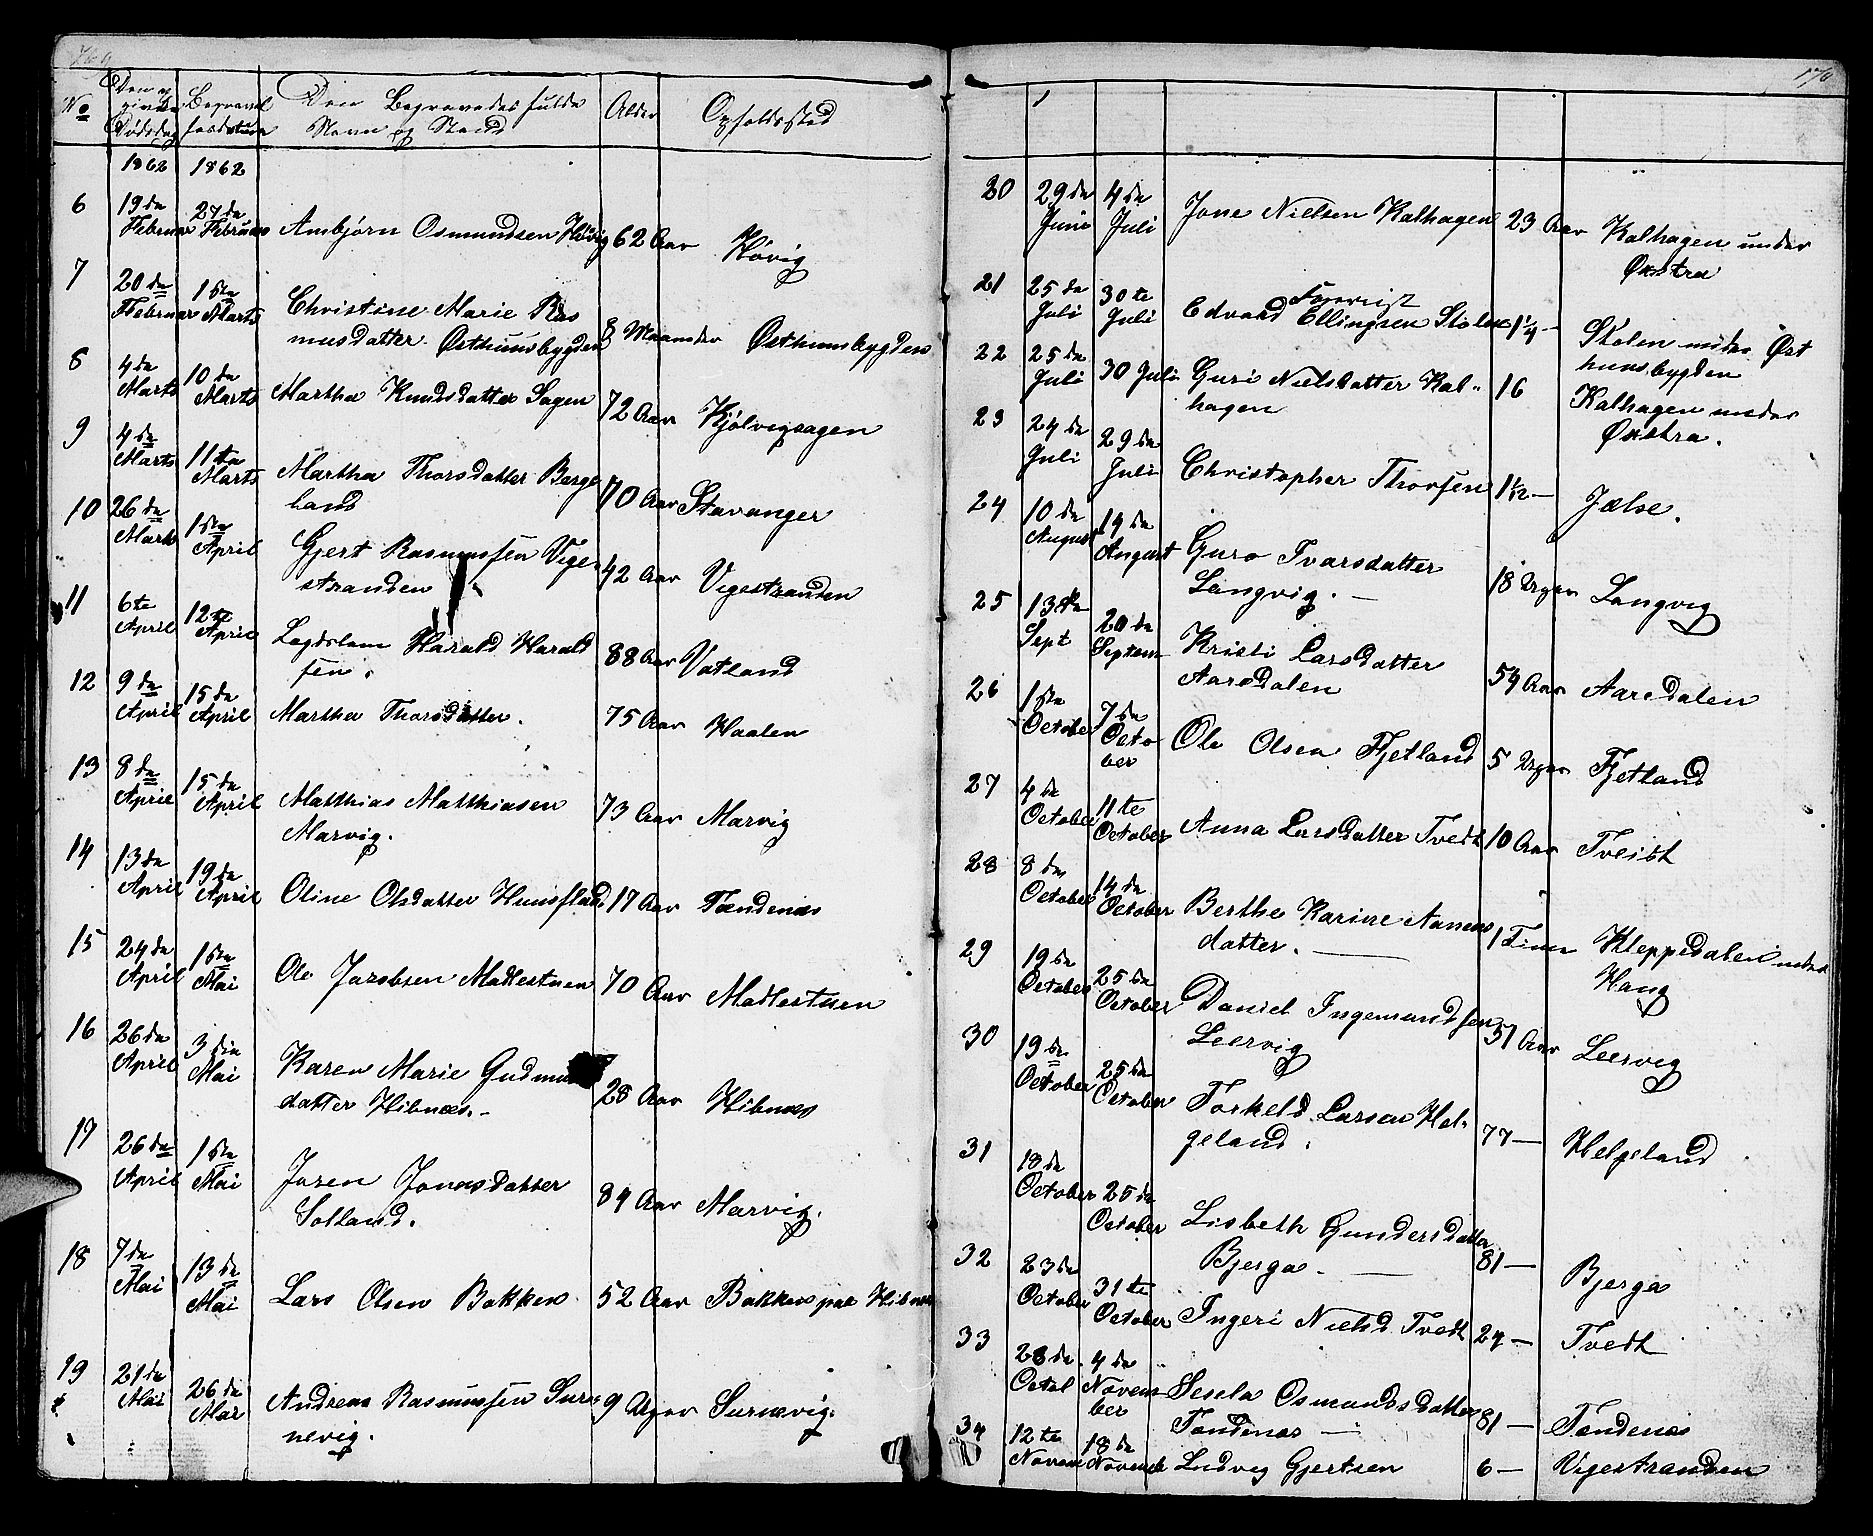 169
No
Den op
givne
Dødsdag
Begravel
sesdatum
Den Begravedes fulde
Navn og Stand
Alder
Opholdssted
1862 1862
6 19de Februar 27de Februar Ambjørn Osmundsen Høvig 62 Aar Høvig
7 20de Februar 1ste Marts Christine Marie Ras
musdatter Østhunsbygden 8 Maaneder Østhunsbygden
8 4de Marts 10de Marts Martha Knudsdatter Sagen 72 Aar Kjølvigsagen
9 4de Marts 11te Marts Martha Thorsdatter Berge
land 70 Aar Stavanger
10 26de Marts 1ste April Gjert Rasmussen Vige
stranden 42 Aar Vigestranden
11 6te April 12te April Legdslem Harald Harald
sen. 88 Aar Vatland
12 9de April 15de April Martha Thorsdatter. 75 Aar Haalen
13 8de April 15de April Matthias Matthiasen
Marvig. 73 Aar Marvig
14 13de April 19de April Oline Olsdatter 17 Aar Tændenæs
15 24de April 1ste Mai Ole Jacobsen Madlestuen 70 Aar Madlestuen
16 26de April 3die Mai Karen Marie Gudm
datter Hibnæs. 28 Aar Hibnæs
17 26de April 1ste Mai Joren Jonasdatter
Solland. 84 Aar Marvig.
18 7de Mai 13de Mai Lars Olsen Bakken 52 Aar Bakken paa Hibnæs
19 21de Mai 26de Mai Andreas Rasmussen Sur
nevig. 9 Uger Surnevig.
170
20 29de Juni 4de Juli Jone Nielsen Kalhagen 23 Aar Kalhagen under
Økstra
21 25de Juli 30te Juli Edvard Ellingsen Stolen 1 1/4 — Stolen under Øst
hunsbygden
22 25de Juli 30 Juli Guri Nielsdatter Kal-
hagen 16 Kalhagen under
Økstra.
23 24de Juli 29de Juli Christopher Thorsen 1 1/12 — Jælse.
24 10de August 19de August Guro Ivarsdatter
Langvig. — 18 Uger Langvig
25 13de Sept 20de Septem Kristi Larsdatter
Aaredalen 54 Aar Aaredalen
26 1ste October 7de Octo
ber Ole Olsen Fjetland 5 Uger Fjetland
27 4de October 11te October Anna Larsdatter Tvedt 10 Aar Tveidt
28 8de October 14de October Berthe Karine Aanens
datter. — 1 Time Kleppedalen under
Haug
29 19de October 25de October Daniel Ingemundsen
Leervig 51 Aar Leervig
30 19de October 25de October Torkeld Larsen Hel-
geland. 77 — Helgeland
31 18de October 25de October Lisbeth Gundersdatter
Bjerga. — 81 — Bjerga
32 23de October 31te October Ingeri Nielsd Tvedt 24 — Tvedt
33 28de Octob 4de Novem
ber Sesela Osmundsdatter
Tændenæs — 81 — Tændenæs
34 12te Novem 18de Novemb Ludvig Gjertsen 6 — Vigestranden